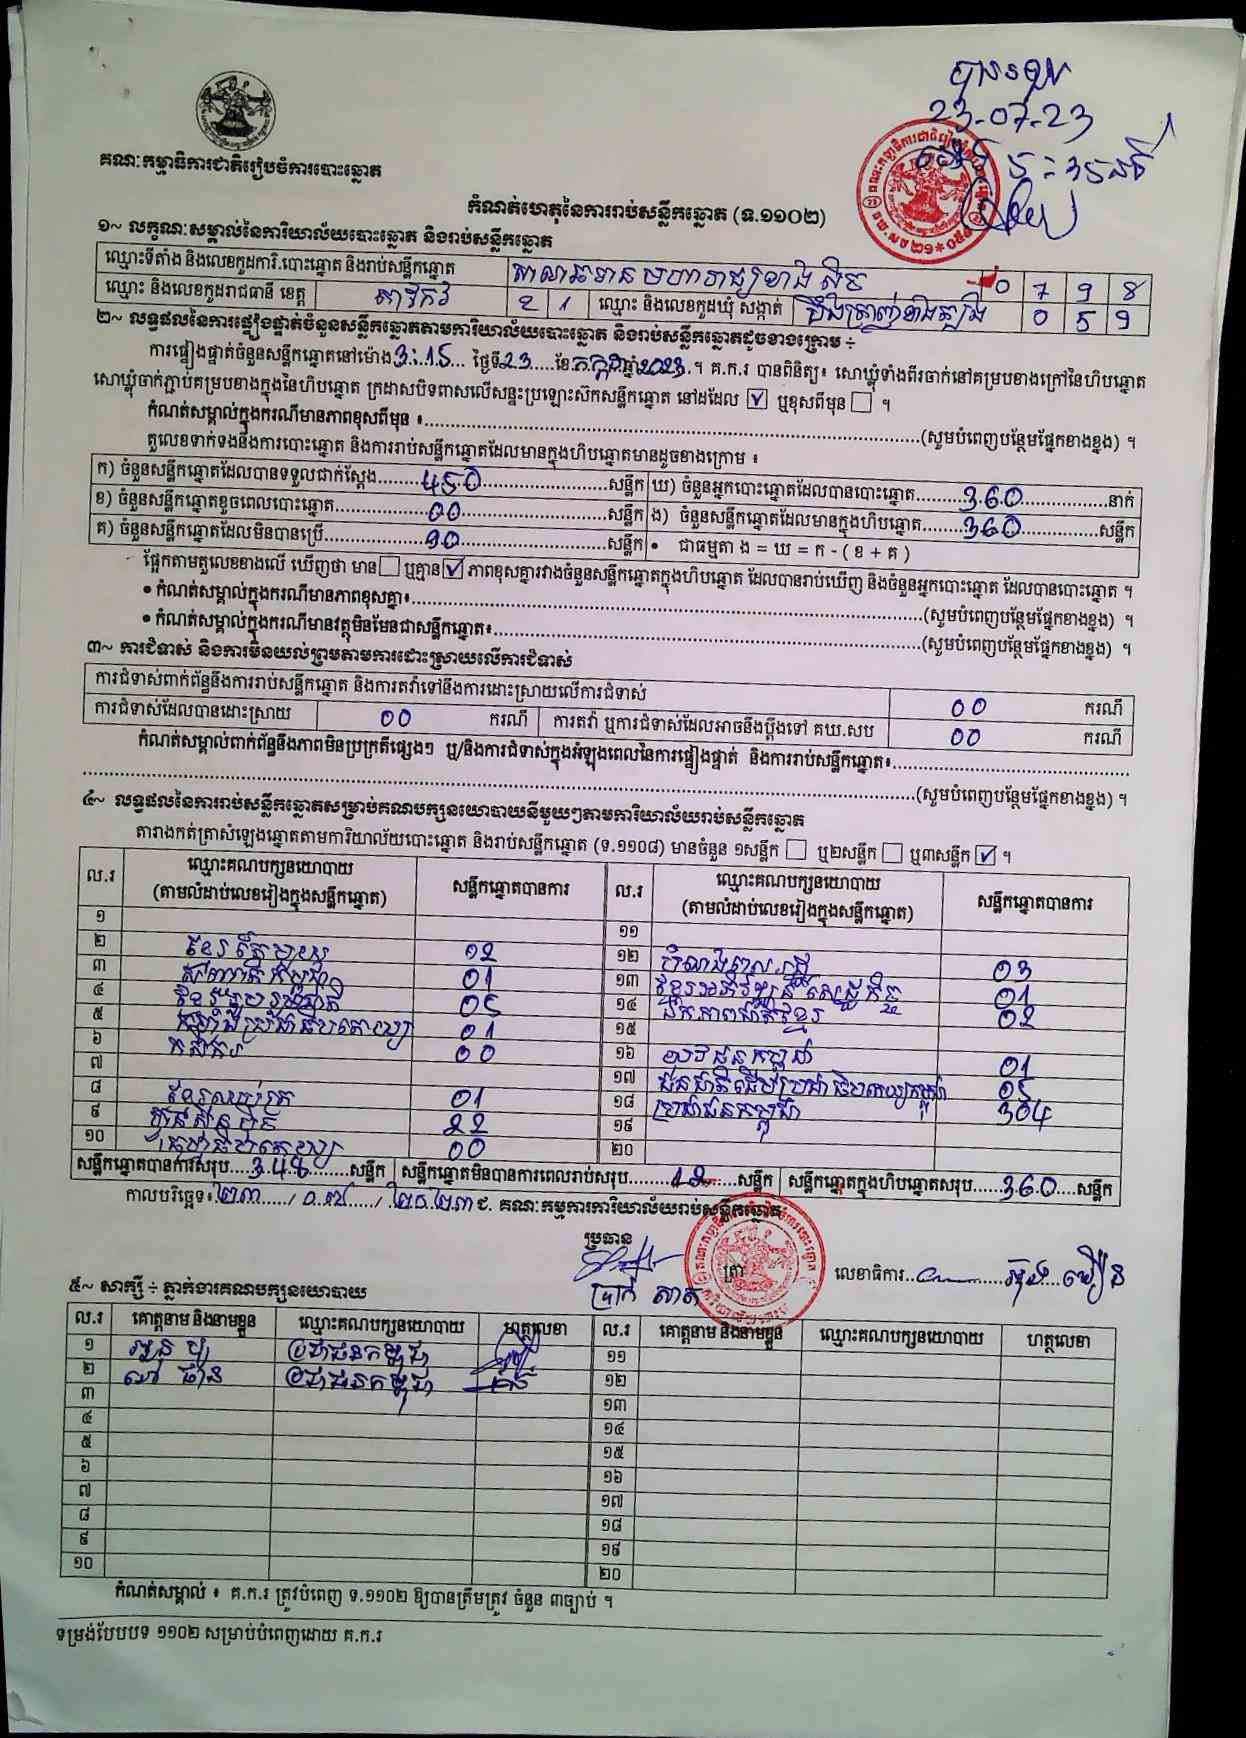 23-07-23
គណៈកម្មាធិការជាតិរៀបចំការបោះឆ្នោត
កំណត់ហេតុនៃការរាប់សន្លឹកឆ្នោត (ទ.១១០២)
១~ លក្ខណៈសម្គាល់នៃការិយាល័យបោះឆ្នោត និងរាប់សន្លឹកឆ្នោត
ឈ្មោះទីតាំង និងលេខកូដការិ.បោះឆ្នោត និងរាប់សន្លឹកឆ្នោត 0 7 9 8
ឈ្មោះ និងលេខកូដរាជធានី ខេត្ត តាកែវ 2 1 ឈ្មោះ និងលេខកូដឃុំ សង្កាត់ 0 5 9
២~ លទ្ធផលនៃការផ្ទៀងផ្ទាត់ចំនួនសន្លឹកឆ្នោតតាមការិយាល័យបោះឆ្នោត និងរាប់សន្លឹកឆ្នោតដូចខាងក្រោម ÷
ការផ្ទៀងផ្ទាត់ចំនួនសន្លឹកឆ្នោតនៅម៉ោង 3:15 ថ្ងៃទី 23 ខែ កក្កដា ឆ្នាំ 2023 ។ គ.ក.រ បានពិនិត្យ៖ សោឃ្លុំទាំងពីរចាក់នៅគម្របខាងក្រៅនៃហិបឆ្នោត
សោឃ្លុំចាក់ភ្ជាប់គម្របខាងក្នុងនៃហិបឆ្នោត ក្រដាសបិទពាសលើសន្ទះប្រឡោះស៊កសន្លឹកឆ្នោត នៅដដែល ☑ ឬខុសពីមុន ☐ ។
កំណត់សម្គាល់ក្នុងករណីមានភាពខុសពីមុន ៖ (សូមបំពេញបន្ថែមផ្នែកខាងខ្នង) ។
តួលេខទាក់ទងនឹងការបោះឆ្នោត និងការរាប់សន្លឹកឆ្នោតដែលមានក្នុងហិបឆ្នោតមានដូចខាងក្រោម ៖
ក) ចំនួនសន្លឹកឆ្នោតដែលបានទទួលជាក់ស្តែង 450 សន្លឹក ឃ) ចំនួនអ្នកបោះឆ្នោតដែលបានបោះឆ្នោត 360 នាក់
ខ) ចំនួនសន្លឹកឆ្នោតខូចពេលបោះឆ្នោត 00 សន្លឹក ង) ចំនួនសន្លឹកឆ្នោតដែលមានក្នុងហិបឆ្នោត 360 សន្លឹក
គ) ចំនួនសន្លឹកឆ្នោតដែលមិនបានប្រើ 90 សន្លឹក • ជាធម្មតា ង = ឃ = ក - ( ខ + គ )
ផ្អែកតាមតួលេខខាងលើ ឃើញថា មាន ☐ ឬគ្មាន ☑ ភាពខុសគ្នារវាងចំនួនសន្លឹកឆ្នោតក្នុងហិបឆ្នោត ដែលបានរាប់ឃើញ និងចំនួនអ្នកបោះឆ្នោត ដែលបានបោះឆ្នោត ។
• កំណត់សម្គាល់ក្នុងករណីមានភាពខុសគ្នា៖ (សូមបំពេញបន្ថែមផ្នែកខាងខ្នង) ។
• កំណត់សម្គាល់ក្នុងករណីមានវត្ថុមិនមែនជាសន្លឹកឆ្នោត៖ (សូមបំពេញបន្ថែមផ្នែកខាងខ្នង) ។
៣~ ការជំទាស់ និងការមិនយល់ព្រមតាមការដោះស្រាយលើការជំទាស់
ការជំទាស់ពាក់ព័ន្ធនឹងការរាប់សន្លឹកឆ្នោត និងការតវ៉ាទៅនឹងការដោះស្រាយលើការជំទាស់ 00 ករណី
ការជំទាស់ដែលបានដោះស្រាយ 00 ករណី ការតវ៉ា ឬការជំទាស់ដែលអាចនឹងប្តឹងទៅ គឃ.សប 00 ករណី
កំណត់សម្គាល់ពាក់ព័ន្ធនឹងភាពមិនប្រក្រតីផ្សេងៗ ឬ/និងការជំទាស់ក្នុងអំឡុងពេលនៃការផ្ទៀងផ្ទាត់ និងការរាប់សន្លឹកឆ្នោត៖
(សូមបំពេញបន្ថែមផ្នែកខាងខ្នង) ។
៤~ លទ្ធផលនៃការរាប់សន្លឹកឆ្នោតសម្រាប់គណបក្សនយោបាយនីមួយៗតាមការិយាល័យរាប់សន្លឹកឆ្នោត
តារាងកត់ត្រាសំឡេងឆ្នោតតាមការិយាល័យបោះឆ្នោត និងរាប់សន្លឹកឆ្នោត (ទ.១១០៨) មានចំនួន ១សន្លឹក ☐ ឬ២សន្លឹក ☐ ឬ៣សន្លឹក ☑ ។
ល.រ ឈ្មោះគណបក្សនយោបាយ (តាមលំដាប់លេខរៀងក្នុងសន្លឹកឆ្នោត) សន្លឹកឆ្នោតបានការ ល.រ ឈ្មោះគណបក្សនយោបាយ (តាមលំដាប់លេខរៀងក្នុងសន្លឹកឆ្នោត) សន្លឹកឆ្នោតបានការ
១ ១១
២ 12 ១២ 03
៣ 01 ១៣ ខ្មែរអភិវឌ្ឍន៍សេដ្ឋកិច្ច 01
៤ ខ្មែររួបរួមជាតិ 05 ១៤ ឯកភាពជាតិខ្មែរ 02
៥ 01 ១៥
៦ កសិករ 00 ១៦ យុវជនកម្ពុជា 01
៧ ១៧ 05
៨ 01 ១៨ ប្រជាជនកម្ពុជា 304
៩ ហ្វ៊ុនស៊ិនប៉ិច 22 ១៩
១០ 00 ២០
សន្លឹកឆ្នោតបានការសរុប 348 សន្លឹក សន្លឹកឆ្នោតមិនបានការពេលរាប់សរុប 12 សន្លឹក សន្លឹកឆ្នោតក្នុងហិបឆ្នោតសរុប 360 សន្លឹក
កាលបរិច្ឆេទ៖ ២៣ / ០៧ / ២០២៣ ជ. គណៈកម្មការការិយាល័យរាប់សន្លឹកឆ្នោត
ប្រធាន
ត្រា លេខាធិការ
៥~ សាក្សី ÷ ភ្នាក់ងារគណបក្សនយោបាយ
ល.រ គោត្តនាម និងនាមខ្លួន ឈ្មោះគណបក្សនយោបាយ ហត្ថលេខា ល.រ គោត្តនាម និងនាមខ្លួន ឈ្មោះគណបក្សនយោបាយ ហត្ថលេខា
១ ប្រជាជនកម្ពុជា ១១
២ ប្រជាជនកម្ពុជា ១២
៣ ១៣
៤ ១៤
៥ ១៥
៦ ១៦
៧ ១៧
៨ ១៨
៩ ១៩
១០ ២០
កំណត់សម្គាល់ ៖ គ.ក.រ ត្រូវបំពេញ ទ.១១០២ ឱ្យបានត្រឹមត្រូវ ចំនួន ៣ច្បាប់ ។
ទម្រង់បែបបទ ១១០២ សម្រាប់បំពេញដោយ គ.ក.រ